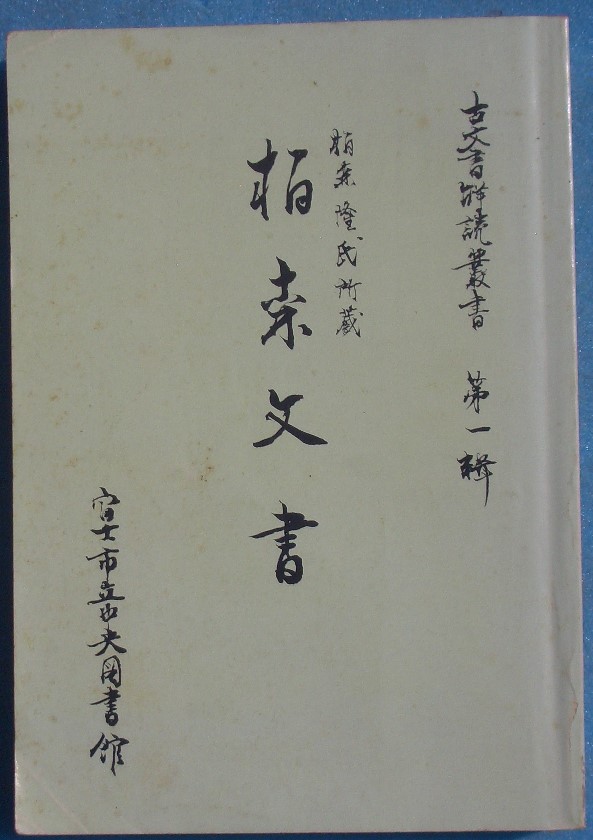 古文書解読叢書　第一輯
栢森隆氏所蔵
栢森文書
富士市立中央図書館